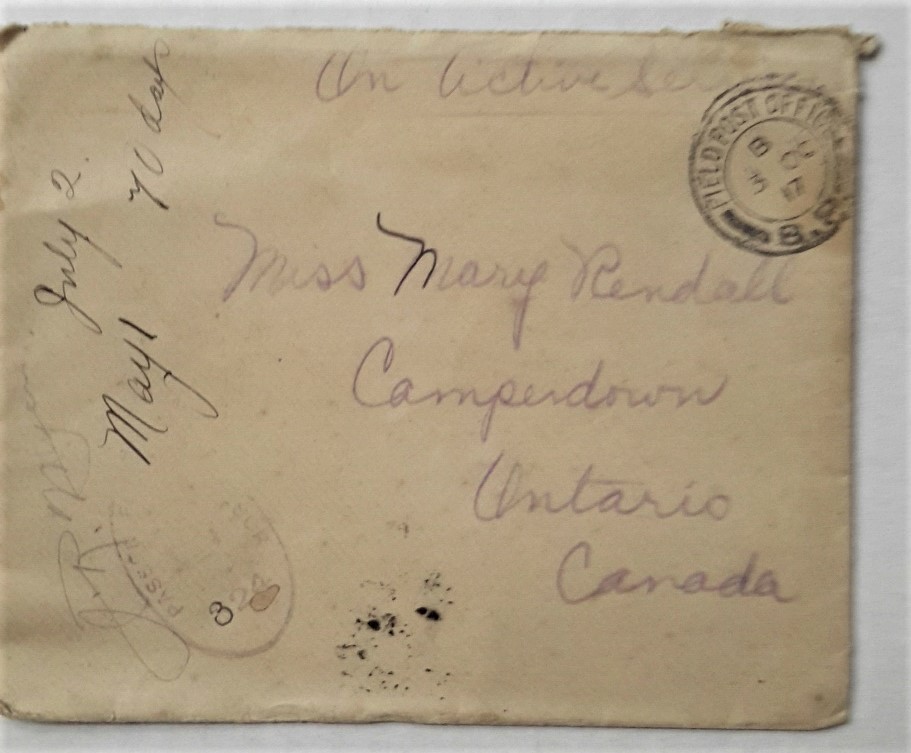 On Active
FIELD POST OFFICE
Miss Mary Rendall
Camperdown
Ontario
Canada
July 2.
May 1 70 days
J. R.
PASSED